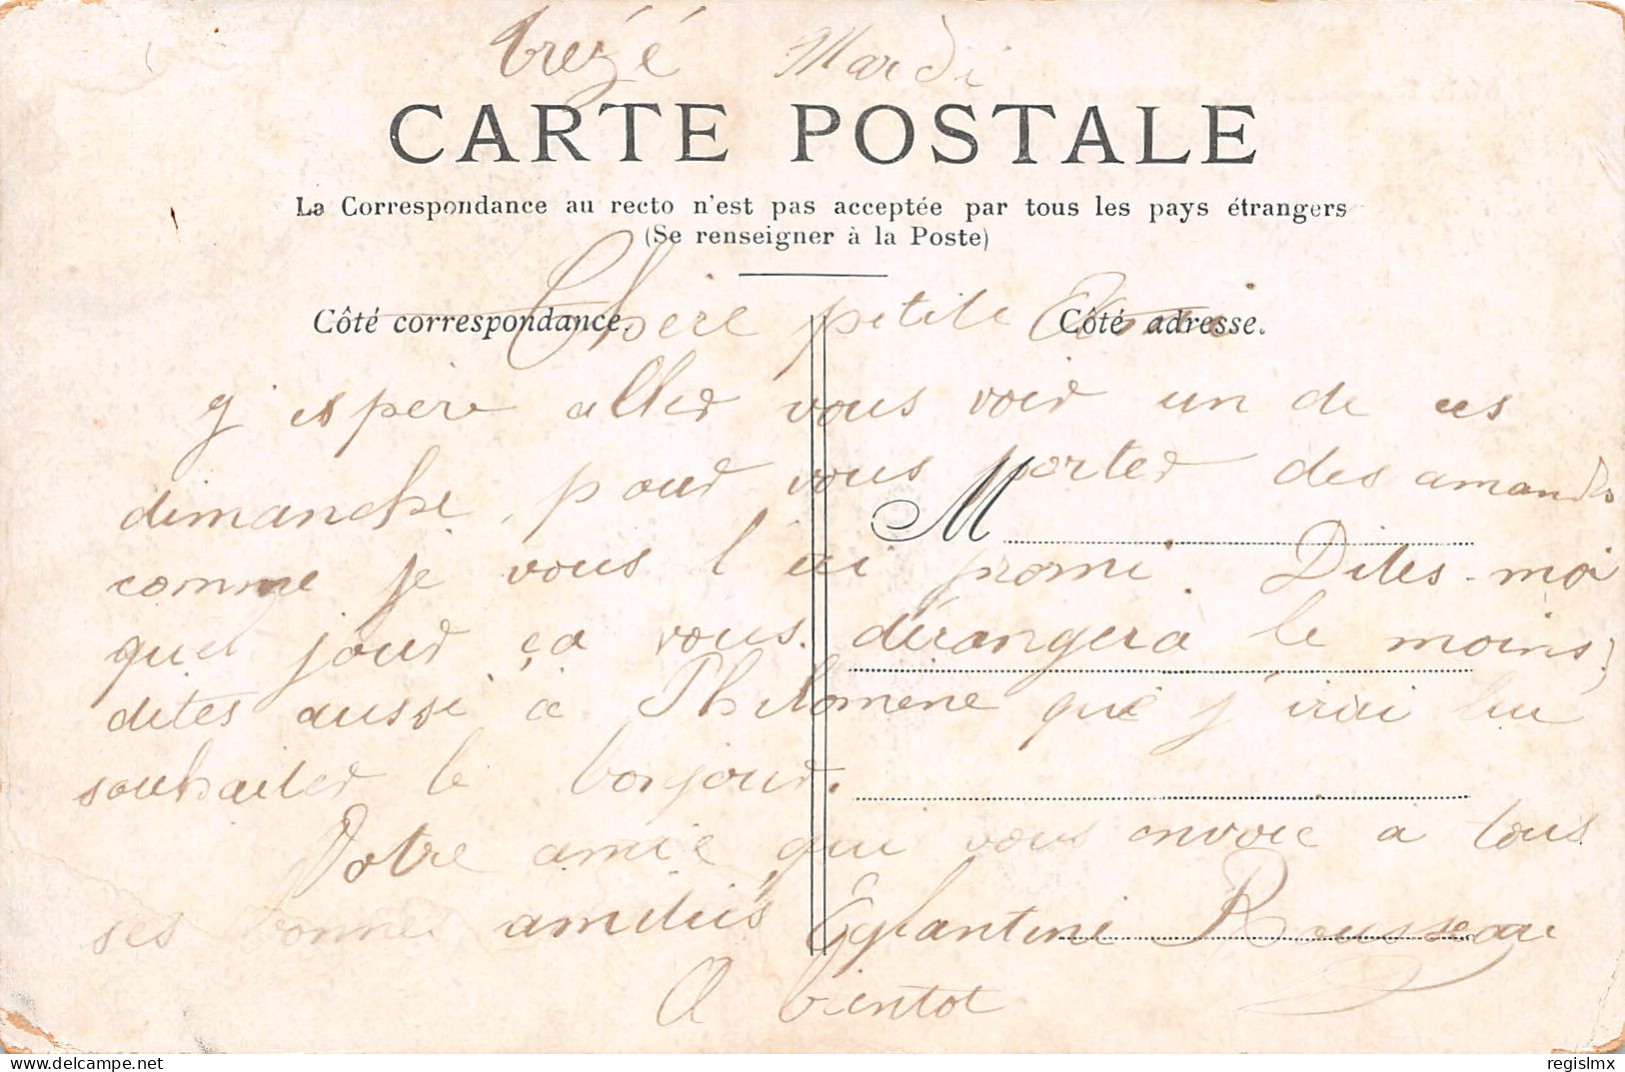 trezé Mardi
CARTE POSTALE
La Correspondance au recto n'est pas acceptée par tous les pays étrangers
(Se renseigner à la Poste)
Côté correspondance. Côté adresse.
Chère petite Amie
j'espère aller vous voir un de ces
dimanche, pour vous porter des amandes
M
comme je vous l'ai promi. Dites-moi
quel jour ça vous dérangera le moins;
dites aussi à Philomène que j'irai lui
souhaiter le bonjour.
Votre amie qui vous envoie a tous
ses bonnes amitiés Eglantine Rousseau
A bientot
delcampe.net
regislmx